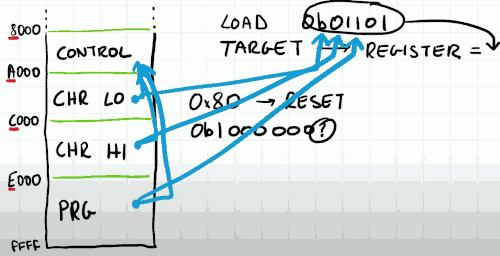 8000
CONTROL
A000
CHR LO
C000
CHR HI
E000
PRG
FFFF
LOAD 0b01101
TARGET → REGISTER =
0x80 → RESET
0b1000000?